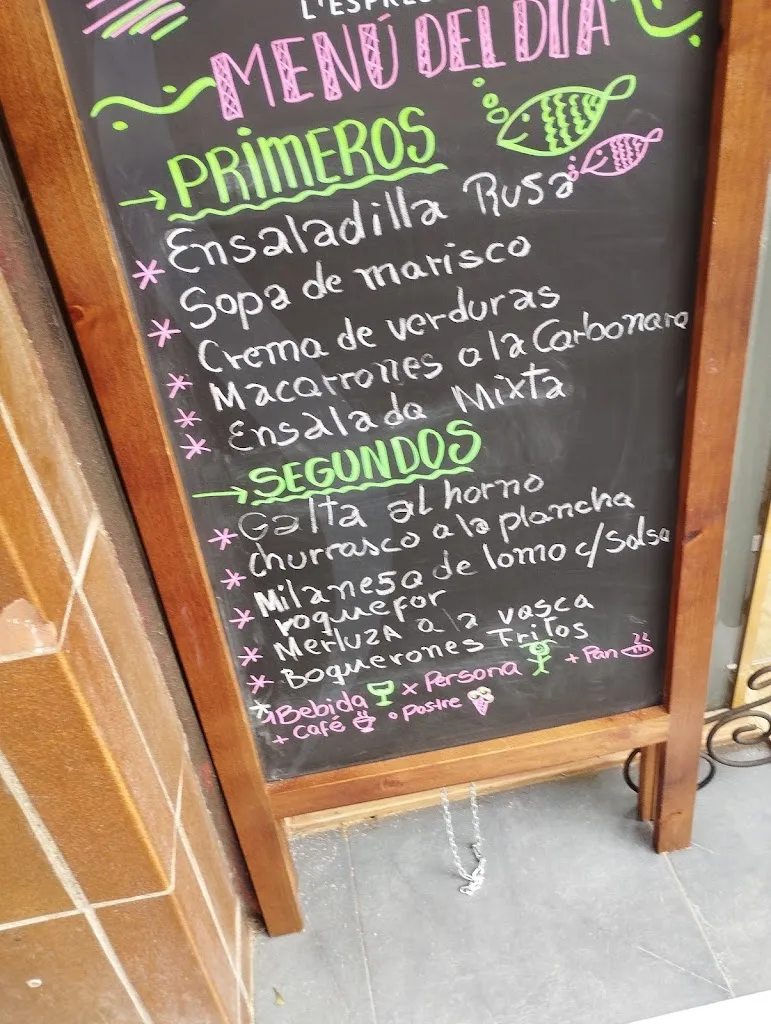 L'ESPRES
MENÚ DEL DIA
PRIMEROS
Ensaladilla Rusa
* Sopa de marisco
* Crema de verduras
* Macarrones a la Carbonara
* Ensalada Mixta
*
SEGUNDOS
* Galta al horno
* churrasco a la plancha
* Milanesa de lomo c/Salsa
roquefor
* Merluza a la vasca
* Boquerones Fritos
* 1Bebida x Persona + Pan
+ Café o Postre